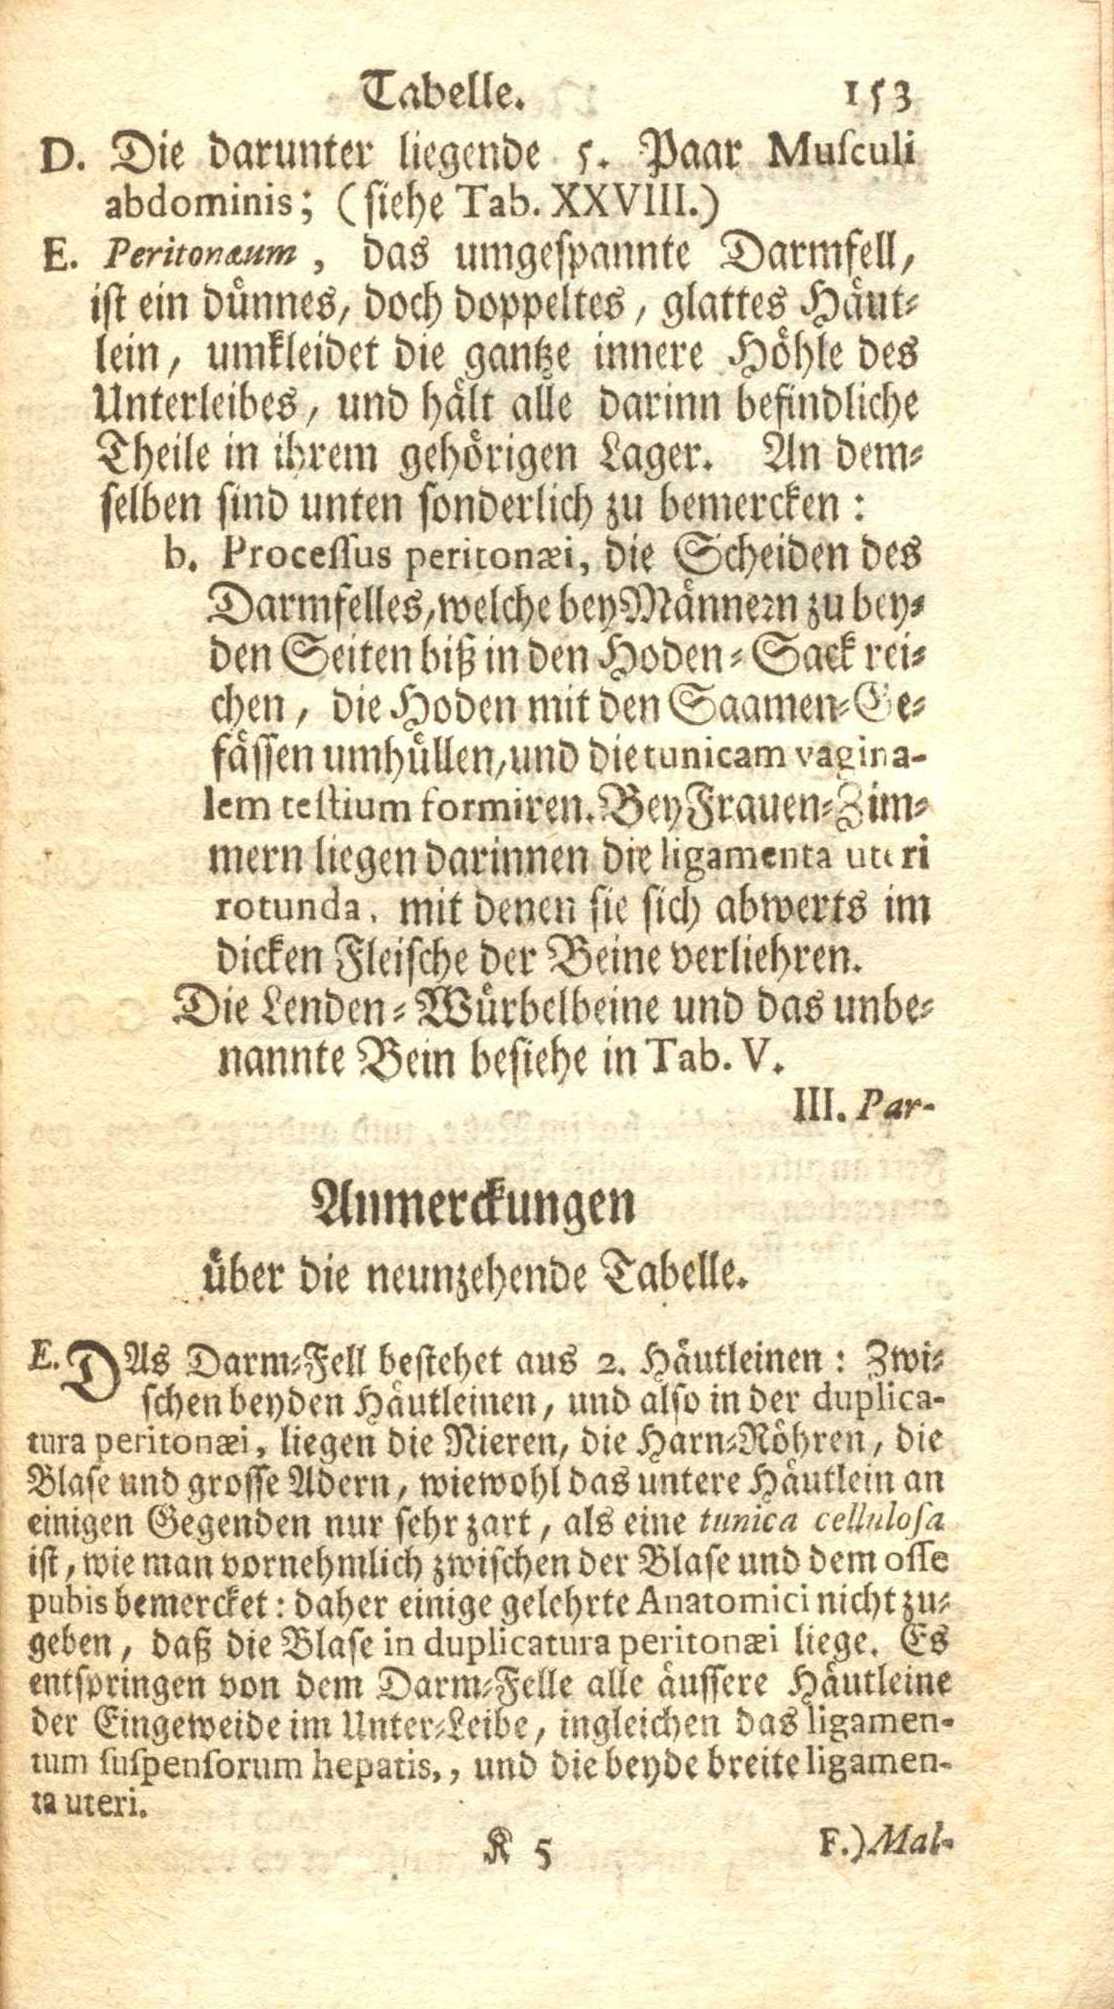 Tabelle. 153
D. Die darunter liegende 5. Paar Musculi
abdominis; (siehe Tab. XXVIII.)
E. Peritonæum, das umgespannte Darmfell,
ist ein dünnes, doch doppeltes, glattes Häut-
lein, umkleidet die gantze innere Höhle des
Unterleibes, und hält alle darinn befindliche
Theile in ihrem gehörigen Lager. An dem-
selben sind unten sonderlich zu bemercken:
b. Processus peritonæi, die Scheiden des
Darmfelles, welche bey Männern zu bey-
den Seiten biß in den Hoden-Sack rei-
chen, die Hoden mit den Saamen-Ge-
fässen umhüllen, und die tunicam vagina-
lem testium formiren. Bey Frauen-Zim-
mern liegen darinnen die ligamenta uteri
rotunda, mit denen sie sich abwerts im
dicken Fleische der Beine verliehren.
Die Lenden-Würbelbeine und das unbe-
nannte Bein besiehe in Tab. V.
III. Par-
Anmerckungen
über die neunzehende Tabelle.
E. DAs Darm-Fell bestehet aus 2. Häutleinen: Zwi-
schen beyden Häutleinen, und also in der duplica-
tura peritonæi, liegen die Nieren, die Harn-Röhren, die
Blase und grosse Adern, wiewohl das untere Häutlein an
einigen Gegenden nur sehr zart, als eine tunica cellulosa
ist, wie man vornehmlich zwischen der Blase und dem osse
pubis bemercket: daher einige gelehrte Anatomici nicht zu-
geben, daß die Blase in duplicatura peritonæi liege. Es
entspringen von dem Darm-Felle alle äussere Häutleine
der Eingeweide im Unter-Leibe, ingleichen das ligamen-
tum suspensorum hepatis,, und die beyde breite ligamen-
ta uteri.
K 5 F.) Mal-